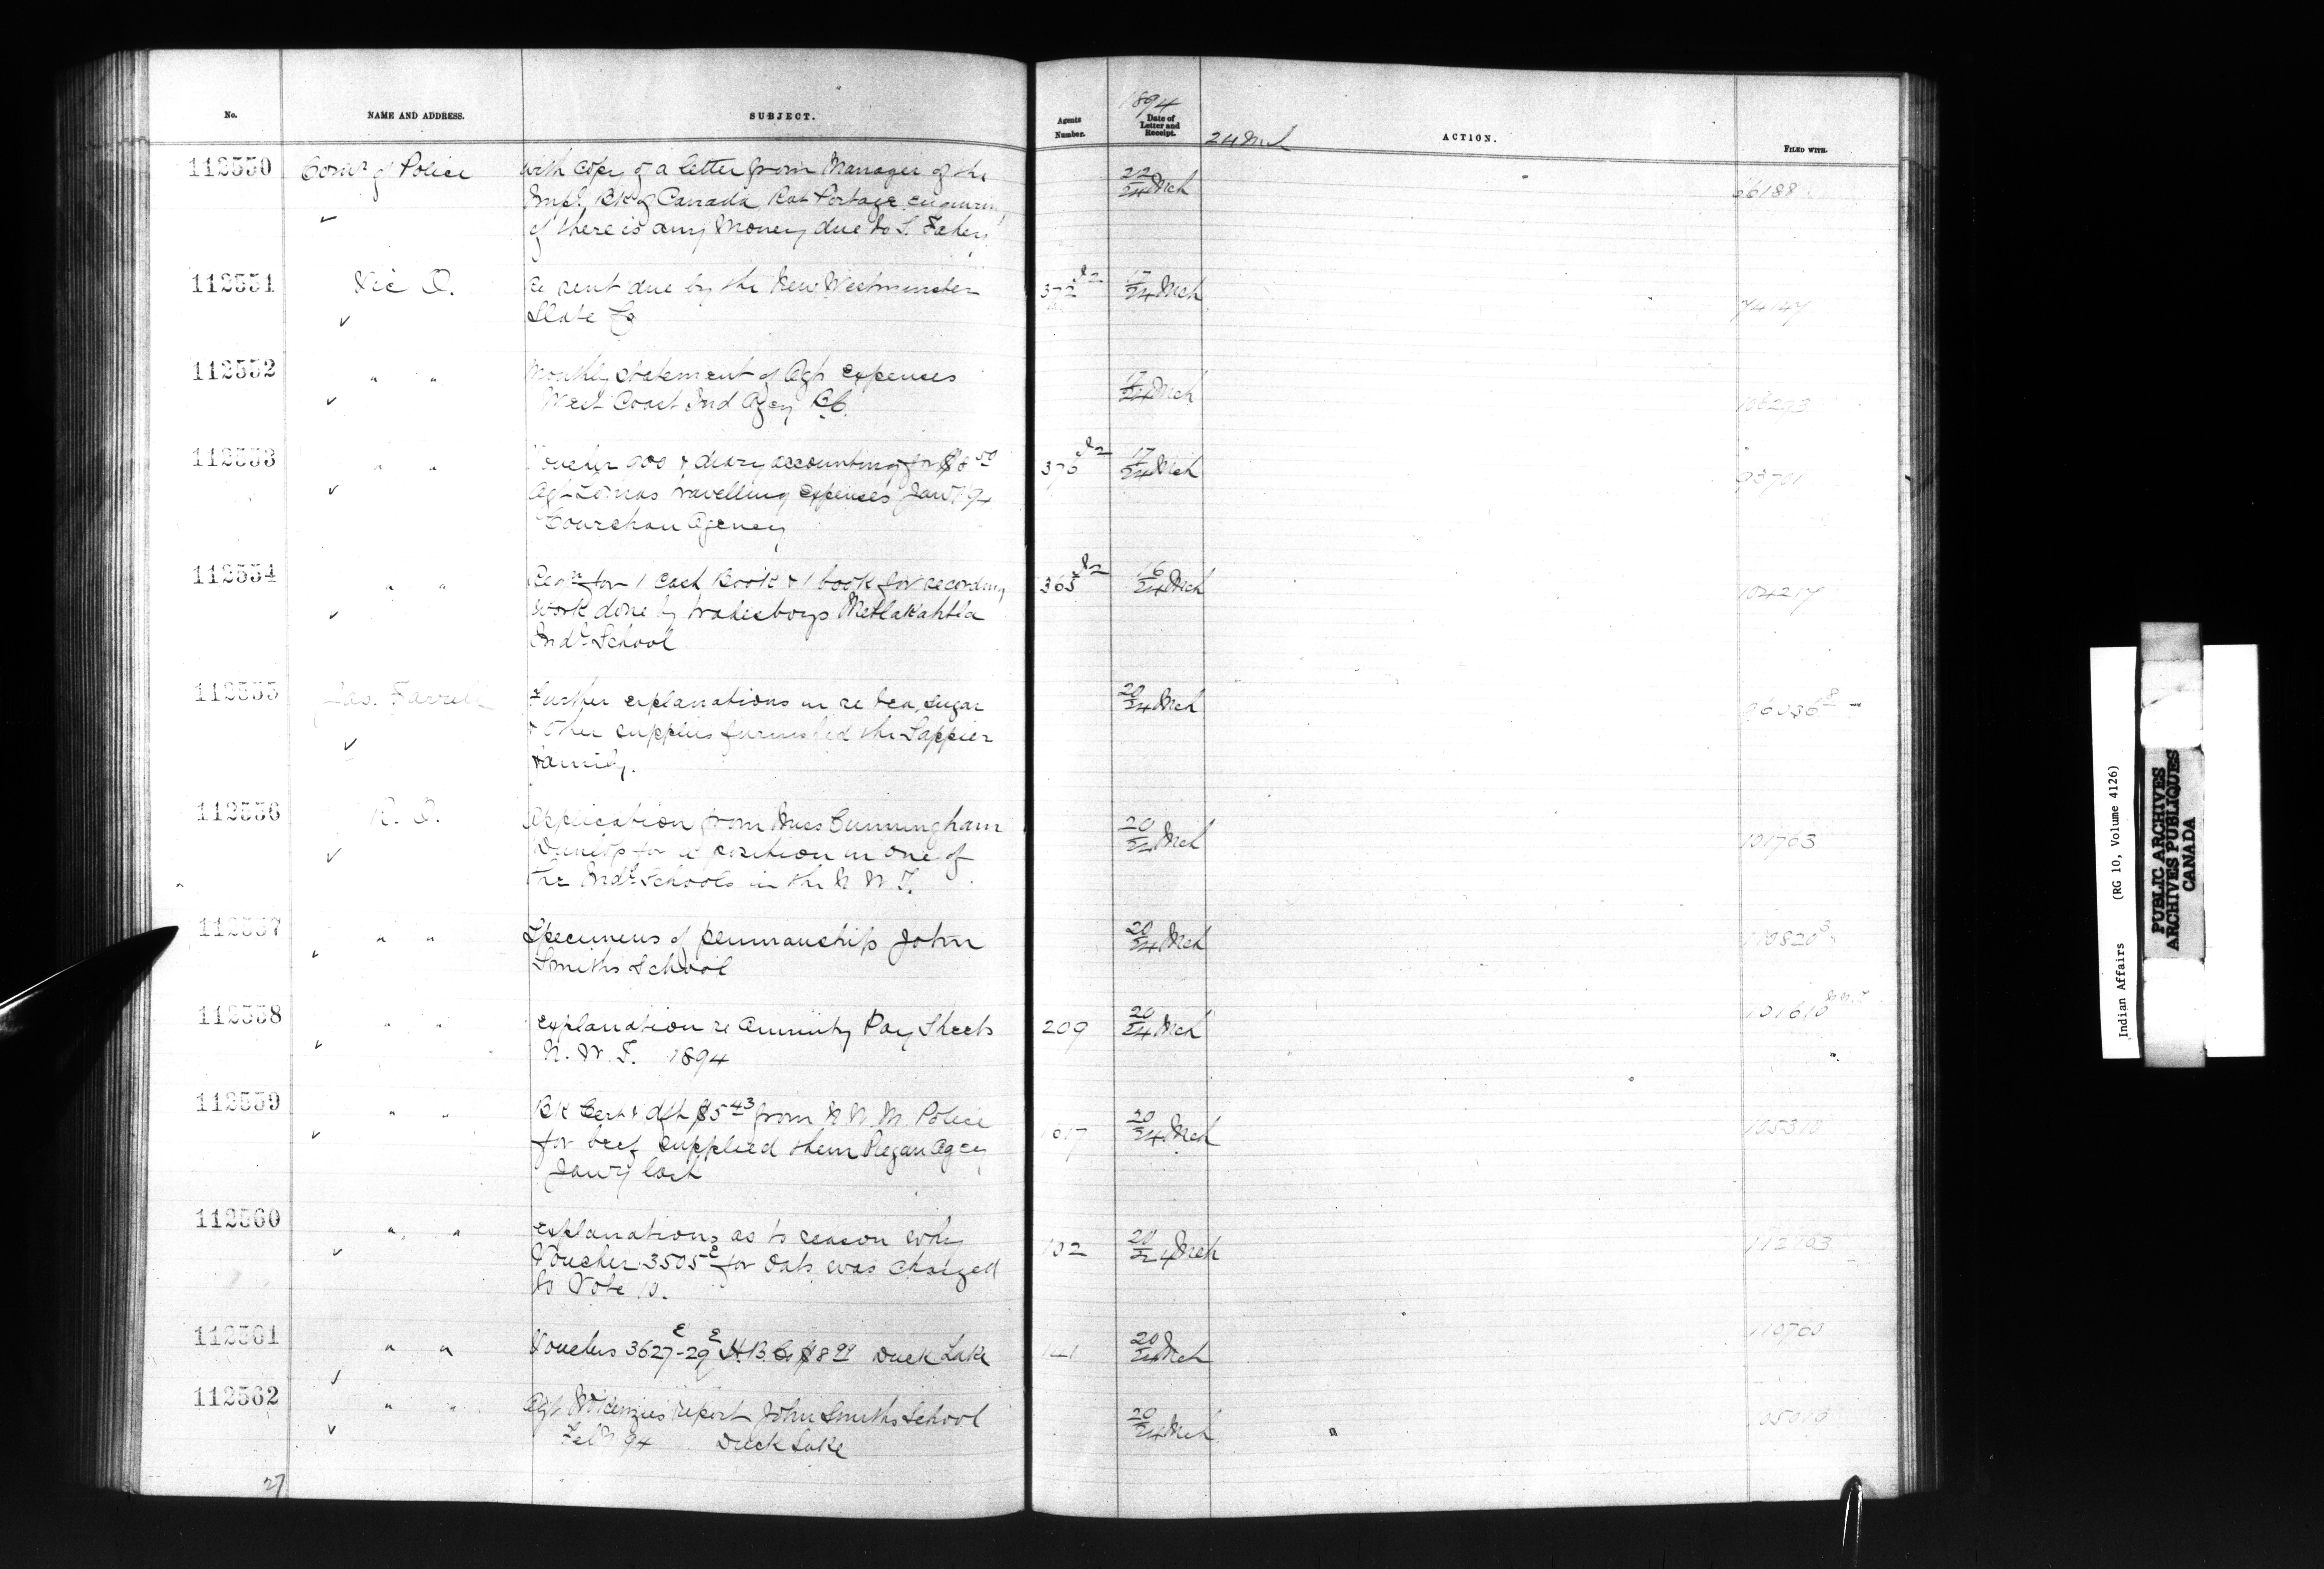 No. NAME AND ADDRESS. SUBJECT. Agents Number. 1894 Date of Letter and Receipt. 24 Mch ACTION. FILED WITH.
112550 Comr of Police with copy of a letter from Manager of the 22/24 Mch 66188
Impl. Bk of Canada, Rat Portage, enquiring
if there is any money due to L. Fahey
112551 Vic O. re rent due by the New Westminster 372 17/24 Mch 74147
Slate Co
112552 " " Monthly statement of Agts expenses 17/24 Mch 108293
West Coast Ind Agcy B.C.
112553 " " Voucher 900 & diary accounting for $8 50 370 17/24 Mch 93701
Agt Lomas travelling expenses Jany '94
Cowichan Agency
112554 " " Reqn for 1 Cash Book & 1 book for recording 365 16/24 Mch 104217
work done by tradesboys Metlakahtla
Indl School
112555 Jas. Farrell Further explanations in re tea, sugar 20/24 Mch 96036
& other supplies furnished the Sappier
family.
112556 R. O. Application from Miss Cunningham 20/24 Mch 101763
Dunlop for a position in one of
the Indl Schools in the N W T.
112557 " " Specimens of penmanship John 20/24 Mch 110820
Smiths School
112558 " " Explanation re Annuity Pay Sheets 209 20/24 Mch 101610
N. W. T. 1894
112559 " " Bk Cert & dft $5 43 from N W M Police 20/24 Mch 105310
for beef supplied them Piegan Agcy
Jany last
112560 " " Explanations as to reason why 102 20/24 Mch
Voucher 3505 E for oats was charged
to Vote 10.
112561 " " Vouchers 3627 E - 29 E H. B. Co $8 99 Duck Lake 20/24 Mch 110760
112562 " " Agt McKenzies report John Smiths School 20/24 Mch
Feby 94 Duck Lake
27
Indian Affairs (RG 10, Volume 4126)
PUBLIC ARCHIVES
ARCHIVES PUBLIQUES
CANADA